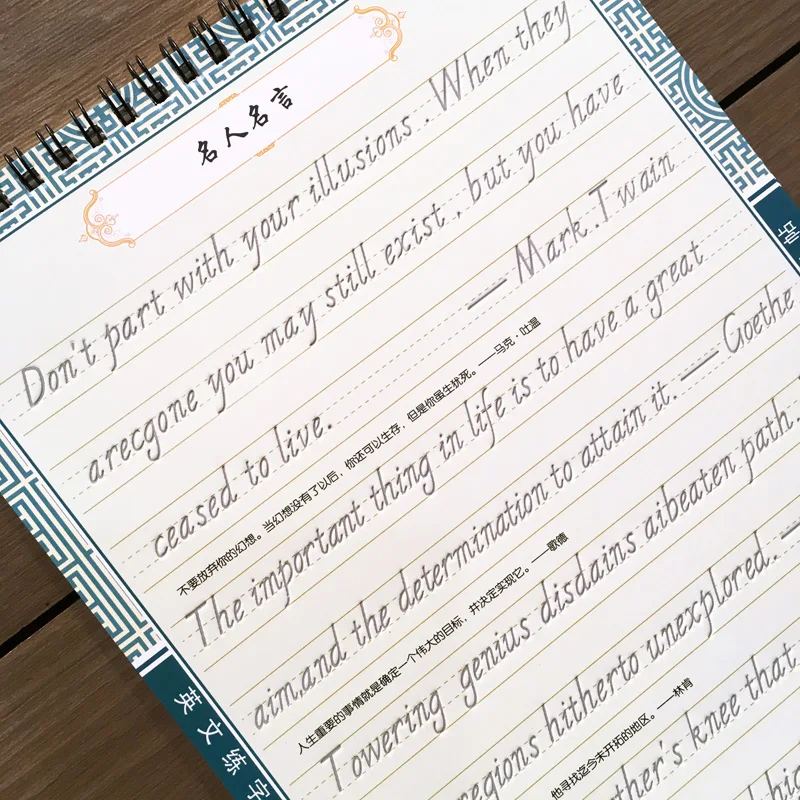 名人名言
Don't part with your illusions . When they
arecgone you may still exist , but you have
ceased to live. — Mark .Twain
不要放弃你的幻想。当幻想没有了以后，你还可以生存，但是你虽生犹死。——马克·吐温
The important thing in life is to have a great
aim,and the determination to attain it. — Goethe
人生重要的事情就是确定一个伟大的目标，并决定实现它。——歌德
Towering genius disdains aibeaten path.
regions hitherto unexplored. —
他寻找迄今未开拓的地区。——林肯
knee that
英文练字